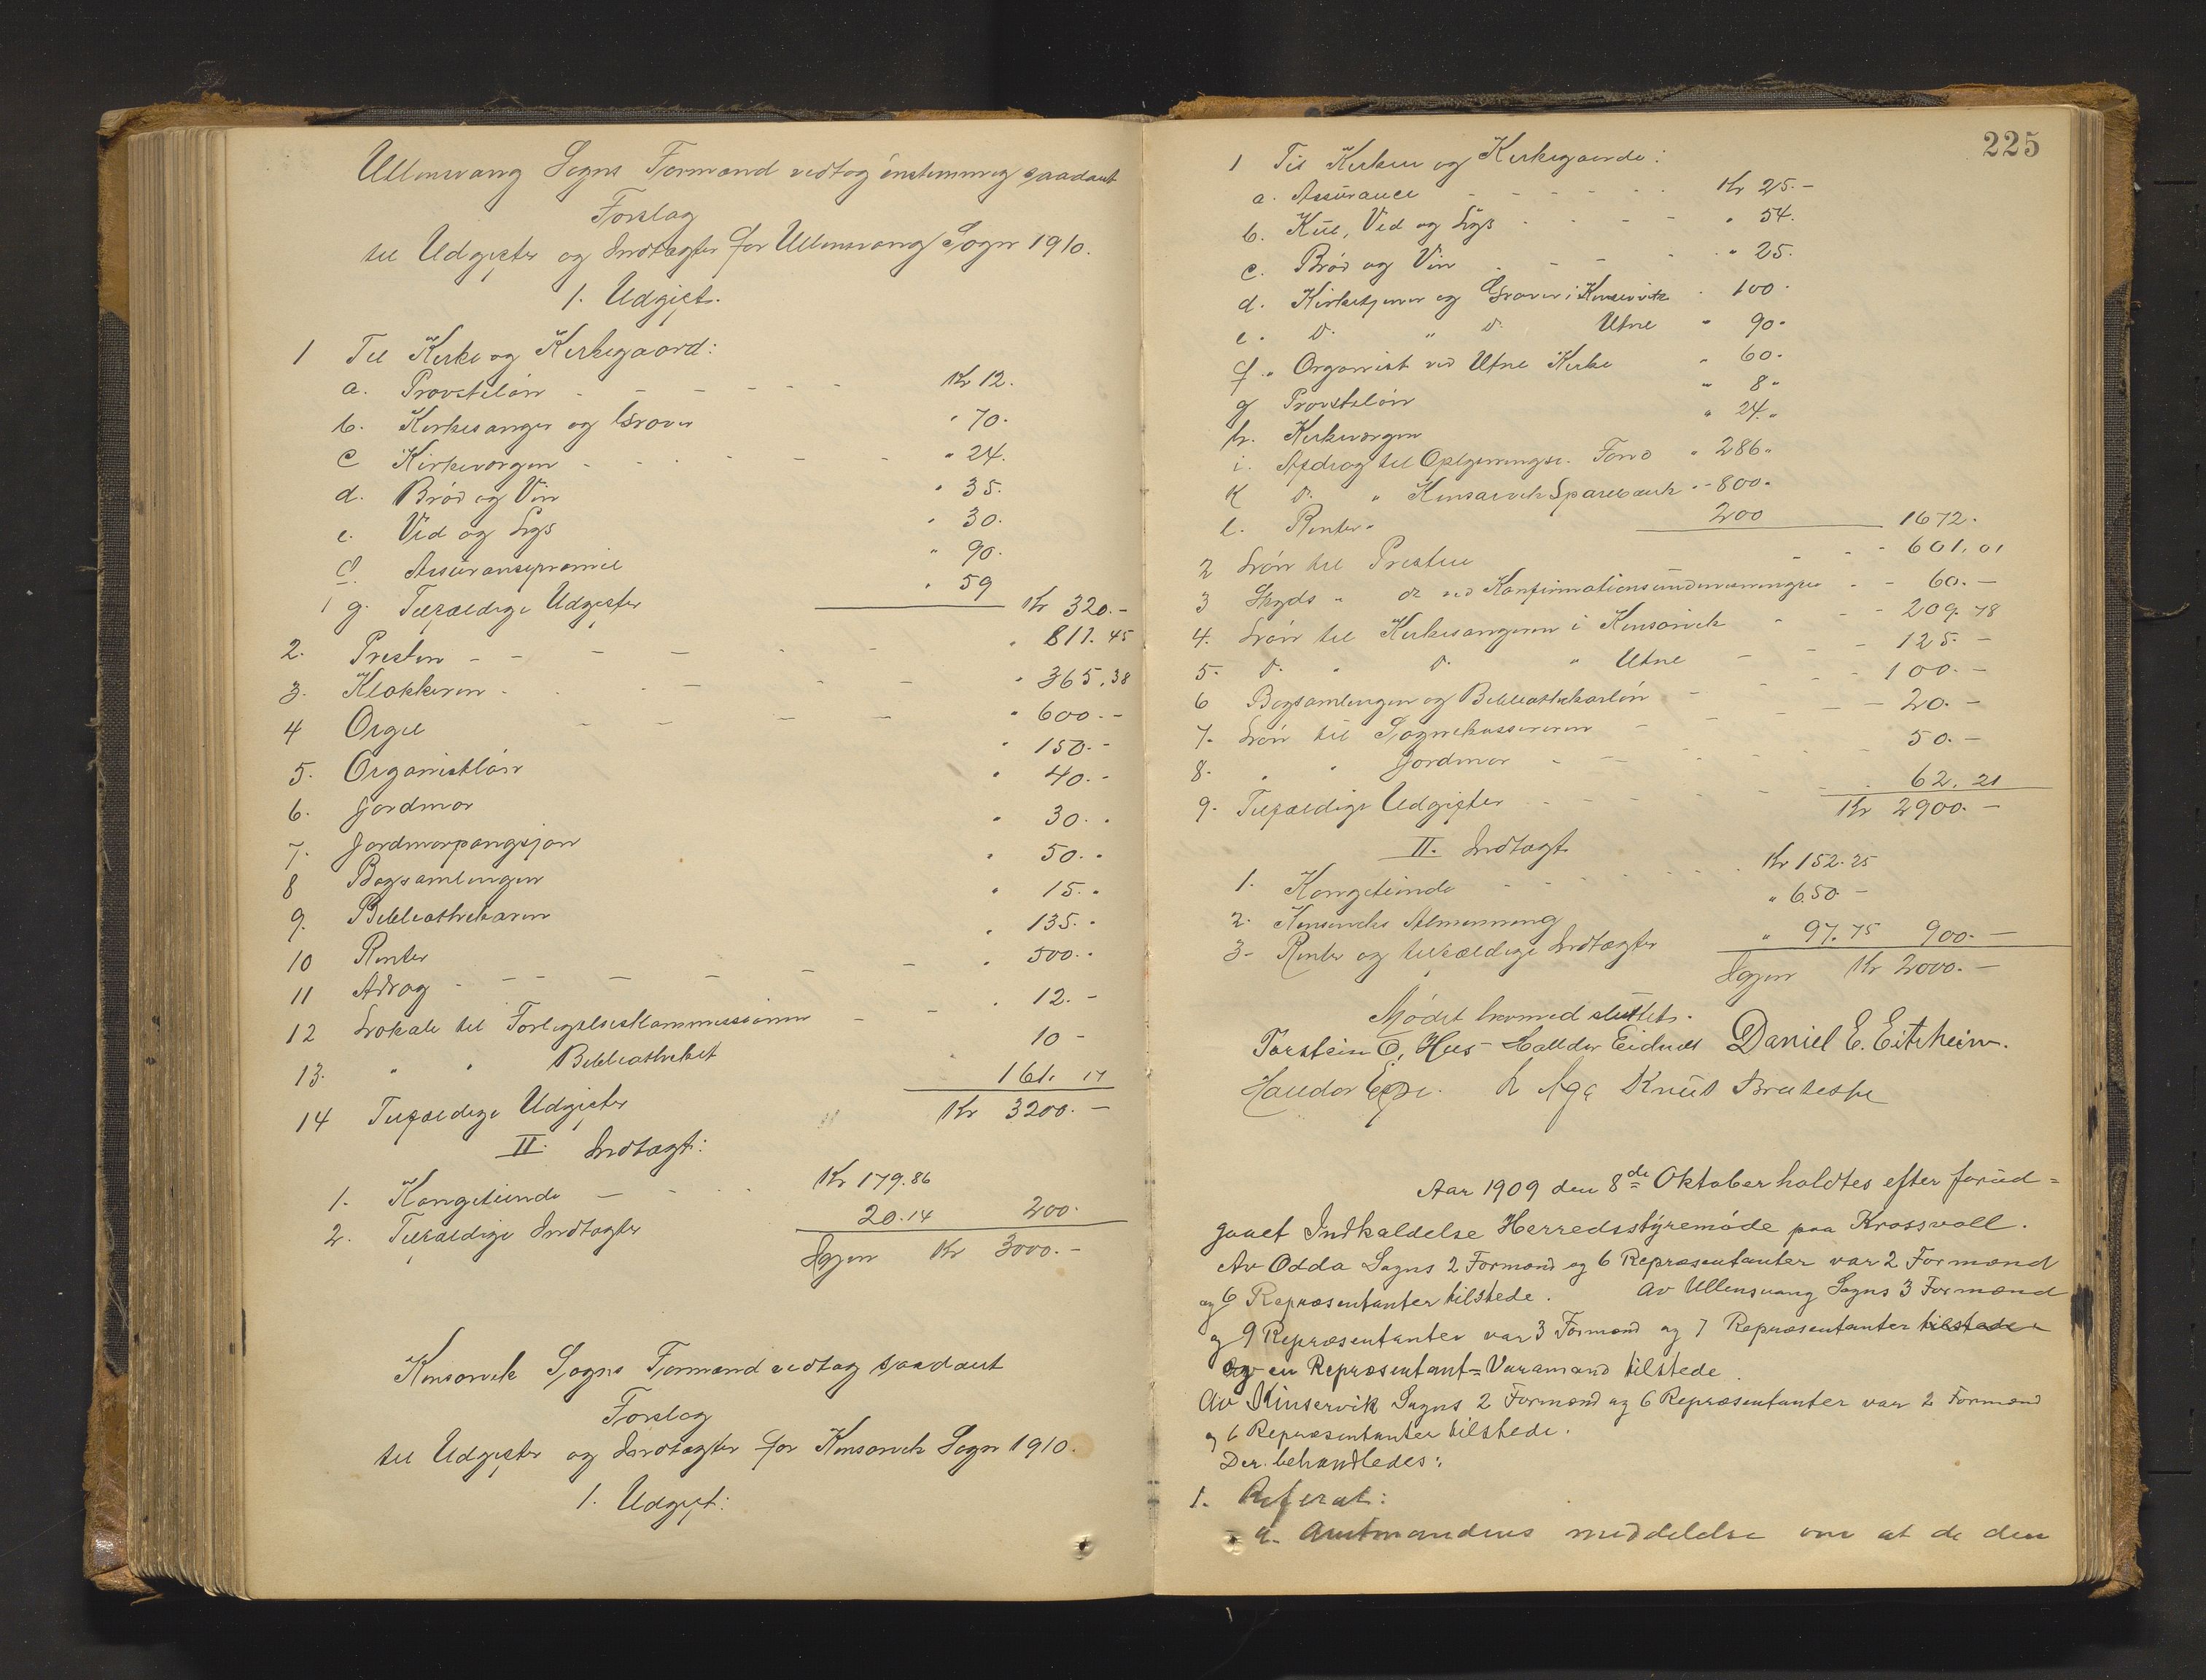 Ullensvang Sogns Formænd vedtog enstemmig saadant
Forslag
til Udgifter og Indtægter for Ullensvang Sogn 1910.
1. Udgift.
1 Til Kirke og Kirkegaard:
a. Provsteløn - - - - - - Kr 12.
b. Kirkesanger og Graver " 70.
c Kirkevergen - - - - - " 24.
d. Brød og Vin " 35.
e. Ved og Lys " 30.
f. Assurancepræmie " 90.
g. Tilfældige Udgifter " 59 Kr 320.-
2. Presten - - - - - - " 811.45
3. Klokkeren - - - - - " 365.38
4 Orgel - - - - " 600.-
5. Organistløn " 150.-
6. Jordmor " 40.-
7. Jordmorpengsjon " 30.-
8 Bogsamlingen " 50.-
9. Bibliothekaren " 15.-
10 Renter " 135.-
11 Avdrag - - - - - - " 500.-
12 Lokale til Forligelseskommissionen - - " 12.-
13. " " Bibliotheket 10 -
14 Tilfældige Udgifter 161. 17
Kr 3200.-
II. Indtægt:
1. Kongetiende - - - Kr 179.86
2. Tilfældige Indtægter 20.14 200.
Igjen Kr 3000.-
Kinsarvik Sogns Formænd vedtog saadant
Forslag
til Udgifter og Indtægter for Kinsarvik Sogn 1910.
1. Udgift:
225
1 Til Kirken og Kirkegaarde:
a. Assurance - - - - - - Kr 25.-
b. Kul, Ved og Lys - - - - " 54.
c. Brød og Vin - - - - " 25.
d. Kirketjener og Graver i Kinservik " 100.
e. D. " D. Utne " 90.
f. " Organist ved Utne Kirke " 60.
g Provsteløn " 8 "
h. Kirkevergen " 24. "
i. Afdrag til Oplysnings. Fond " 286 "
k D. " Kinsarvik Sparebank " 800.
l. Renter 200 1672.
2 Løn til Presten - - - 601,01
3 Skyds " D. ved Konfirmationsundervisningen - - 60.-
4. Løn til Kirkesangeren i Kinsarvik - - - 209.78
5. D. " D. " Utne - - - 125.-
6 Bogsamlingen og Bibliothekarløn - - - 100.-
7. Løn til Sognekassereren - - - 20.-
8. " " Jordmor - - - 50.-
9. Tilfældige Udgifter - - - - - 62.21
Kr 2900.-
II. Indtægt
1. Kongetiende - - - - - Kr 152.25
2. Kinserviks Almenning " 650.-
3. Renter og tilfældige Indtægter " 97.75 900.-
Igjen Kr 2000.-
Mødet hermed sluttet.
Torstein O, Hus Halldor Eidnes Daniel E. Eitrheim.
Halldor Espe. Aga Knud Bråtespe
Aar 1909 den 8de Oktober holdtes efter forud=
gaaet Indkaldelse Herredsstyremøde paa Krossvoll.
Av Odda Sogns 2 Formænd og 6 Repræsentanter var 2 Formænd
og 6 Repræsentanter tilstede. Av Ullensvang Sogns 3 Formænd
og 9 Repræsentanter var 3 Formænd og 7 Repræsentanter tilstede
og en Repræsentant=Varamand tilstede.
Av Kinservik Sogns 2 Formænd og 6 Repræsentanter var 2 Formænd
og 6 Repræsentanter tilstede.
Der behandledes:
1. Referat:
a. Amtmandens meddelelse om at de den